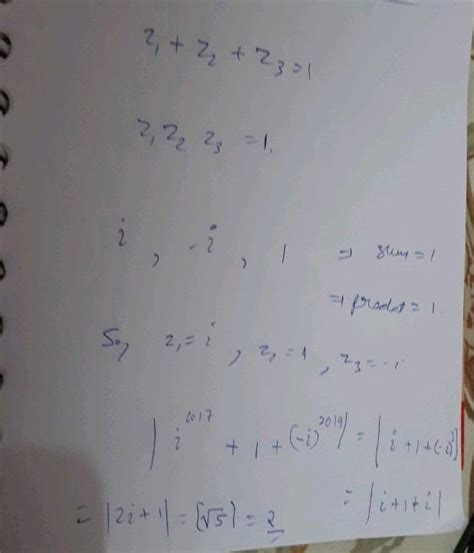 z₁ + z₂ + z₃ = 1
z₁ z₂ z₃ = 1.
i , -i , 1 ⇒ sum = 1
⇒ product = 1.
So, z₁ = i , z₂ = 1 , z₃ = -i
| i²⁰¹⁷ + 1 + (-i)²⁰¹⁹ | = | i + 1 + (-i)³ |
= | i + 1 + i |
= | 2i + 1 | = [√5] = 2